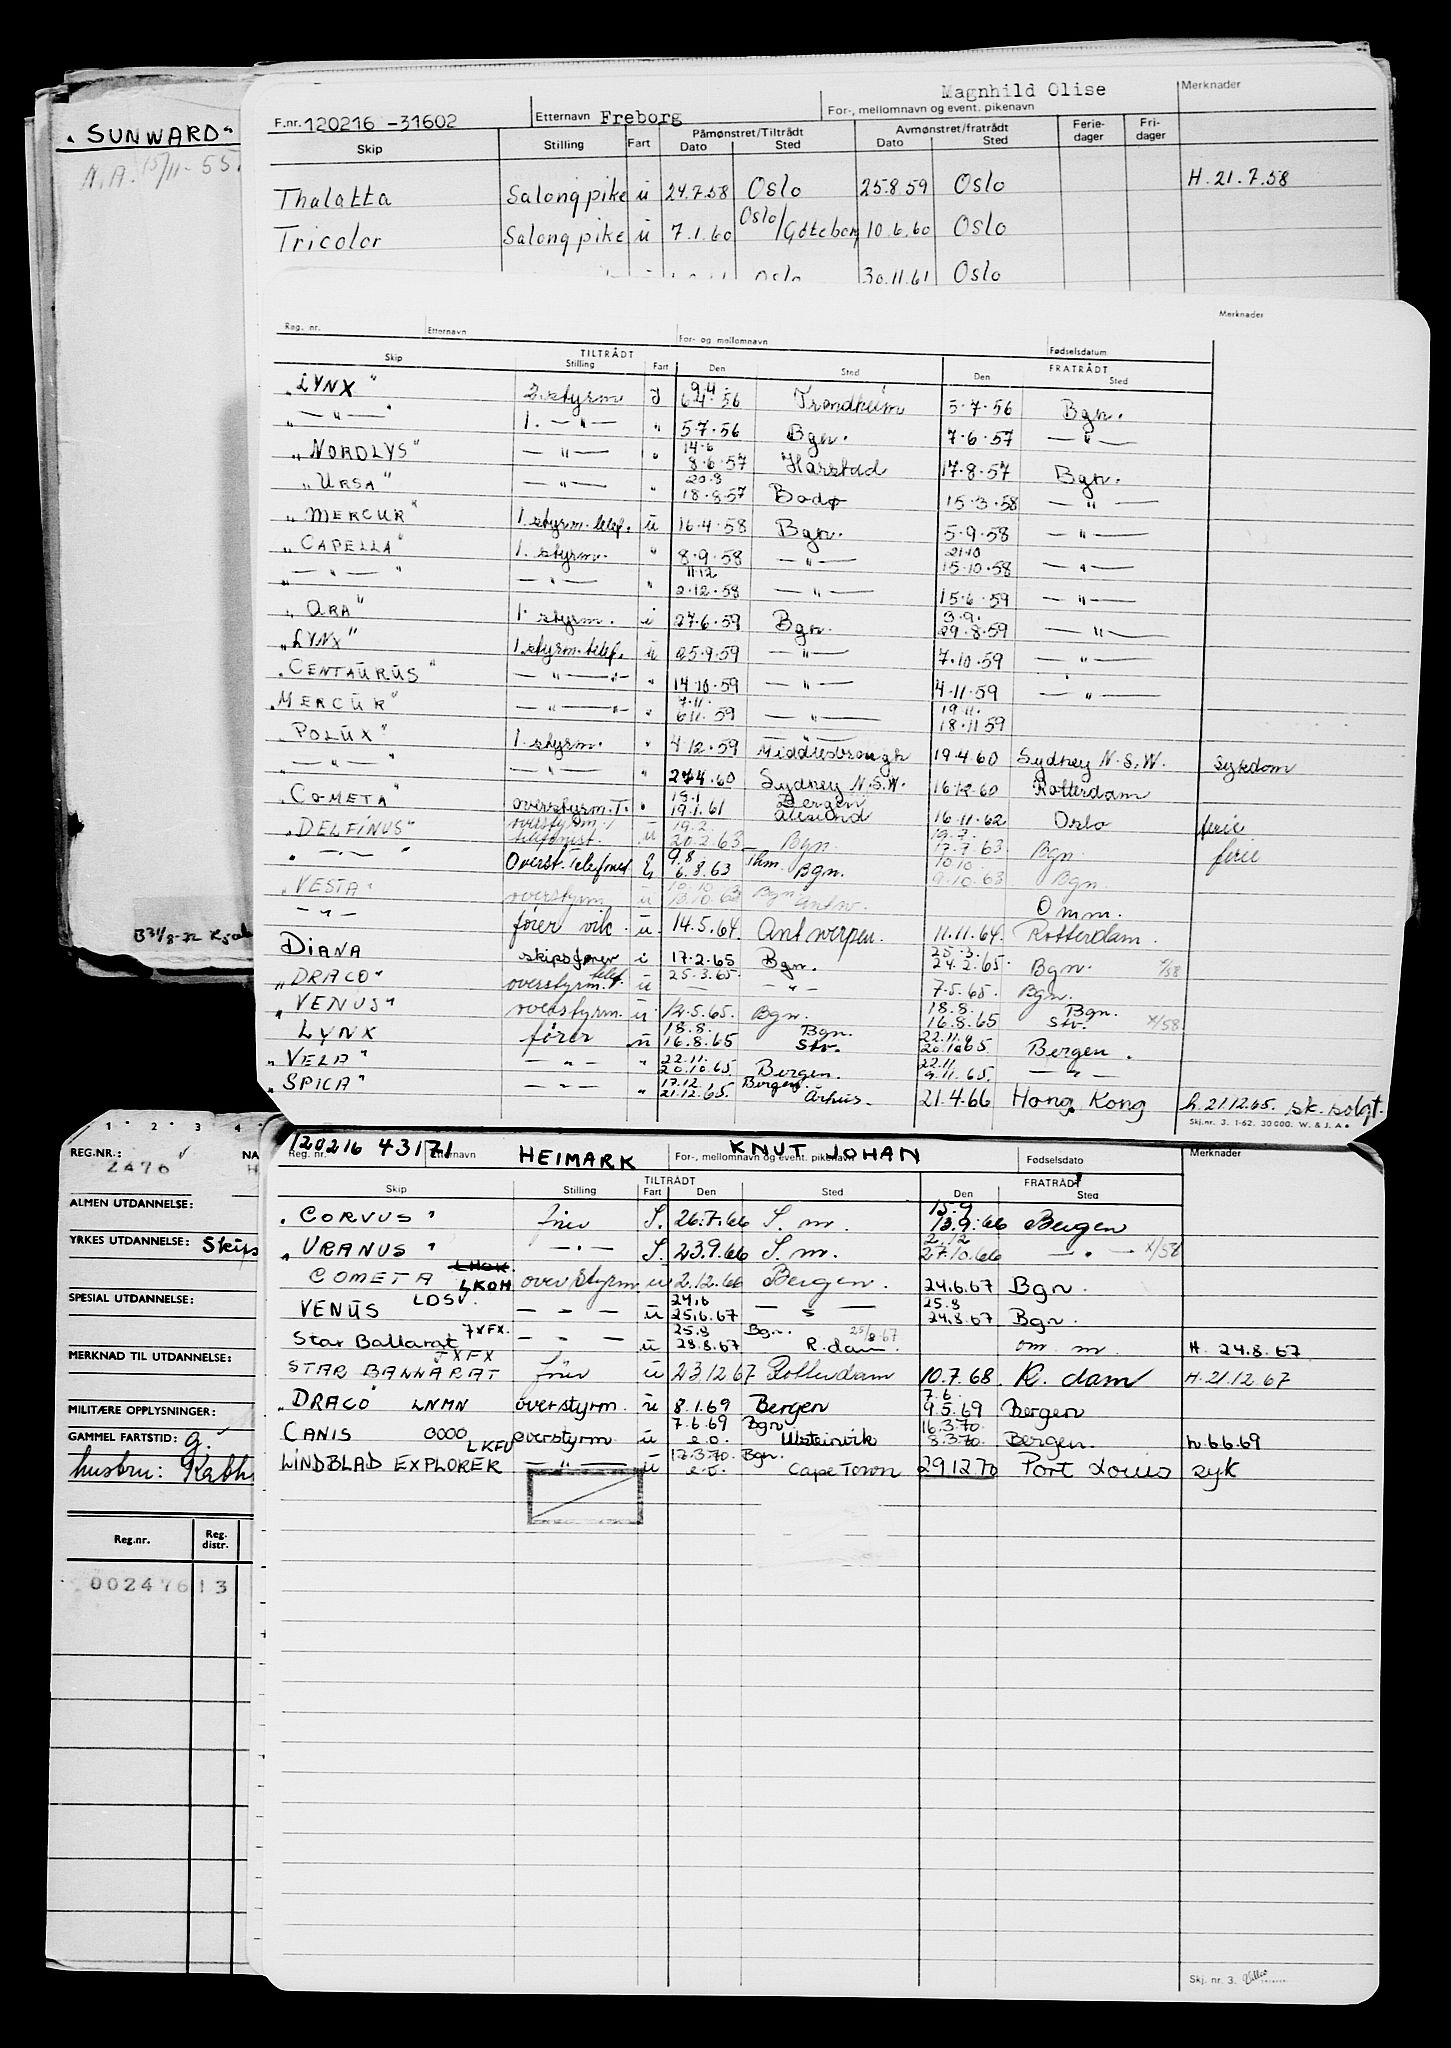 "SUNWARD"
Magnhild Olise
F.nr. 120216 -31602 Etternavn Freborg For-, mellomnavn og event. pikenavn Merknader
Skip Stilling Fart Påmønstret/Tiltrådt Dato Sted Avmønstret/fratrådt Dato Sted Ferie-dager Fri-dager
Thalatta Salongpike u 24.7.58 Oslo 25.8.59 Oslo H. 21.7.58
Tricolor Salongpike u 7.1.60 Oslo/Göteborg 10.6.60 Oslo
Oslo 30.11.61 Oslo
Reg. nr. Etternavn For- og mellomnavn Fødselsdatum Merknader
Skip TILTRÅDT Stilling Fart Den Sted Den FRATRÅDT Sted
"LYNX" 2. styrm 56 Trondheim 5.7.56 Bgn.
" — " — " 1. — " — " 5.7.56 Bgn. 7.6.57 — " —
"NORDLYS" — " — " 14.6 8.6.57 Harstad 17.8.57 Bgn.
"URSA" — " — " 18.8.57 Bodø 15.3.58 — " —
"MERCUR" 1. styrm. telef. u 16.4.58 Bgn. 5.9.58 — " —
"CAPELLA" 1. styrm. " 8.9.58 — " — 21.10 15.10.58 — " —
" — " — " — " — " 11.12 2.12.58 — " — 15.6.59 — " —
"ARA" 1. styrm. i 27.6.59 Bgn. 3.9. 29.8.59 — " —
"LYNX" 1. styrm. telef. u 25.9.59 — " — 7.10.59 — " —
"CENTAURUS" — " — " — " 14.10.59 — " — 4.11.59 — " —
"MERCUR" — " — " — " 7.11. 6.11.59 — " — 19.11. 18.11.59
"POLUX" 1. styrm. " 4.12.59 Middlesbrough 19.4.60 Sydney N.S.W. sykdom
" — " — " — " — " 27.4.60 Sydney N.S.W. 16.12.60 Rotterdam
"COMETA" overstyrm. T. " 19.1.61 Bergen Ålesund 16.11.62 Oslo ferie
"DELFINUS" overstyrm. telefonist. u 19.2. 20.2.63 Bgn. 17.7.63 Bgn. ferie
" — " — " Overst. Telefonist 9.8. 6.8.63 Thm. Bgn. 10.10 9.10.63 Bgn.
"VESTA" overstyrm. u 10.10 13.10.63 Bgn. Antw. Omm.
— " — fører vik. u. 14.5.64. Antwerpen. 11.11.64. Rotterdam.
DIANA skipsfører i 17.2.65 Bgn. 25.3. 24.2.65. Bgn. x/58
"DRACO" overstyrm. telef. u 25.3.65. — " — 7.5.65. Bgn.
"VENUS" overstyrm. u 12.5.65. Bgn. 18.8. 16.8.65 Bgn. Stv. x/58
LYNX fører u 18.8. 16.8.65 Bgn. Stv. 22.11. 20.10.65 Bergen.
"VELA" — " — " 22.11. 20.10.65 Bergen. 22.11 9.11.65. — " —
"SPICA" — " — " 17.12. 21.12.65. Bergen. Århus. 21.4.66 Hong Kong h. 21.12.65. sk. solgt.
Skj.nr. 3. 1-62. 30 000. W. & J. A.
1 · 2 · 3 4
REG.NR.: 2476 NA
ALMEN UTDANNELSE:
YRKES UTDANNELSE: Skips
SPESIAL UTDANNELSE:
MERKNAD TIL UTDANNELSE:
MILITÆRE OPPLYSNINGER:
GAMMEL FARTSTID: g.
hustru: Kath
Reg.nr. Reg. distr.
00247613
120216 43171
Reg. nr. Etternavn HEIMARK For-, mellomnavn og event. pikenavn KNUT JOHAN Fødselsdato Merknader
Skip Stilling TILTRÅDT Fart Den Sted Den FRATRÅDT Sted
"CORVUS" fører S. 26.7.66 S. m. 15.9 13.9.66 Bergen
"URANUS" — " — S. 23.9.66 S. m. 2.12 27.10.66 — " — x/58
COMETA LKOH overstyrm u 2.12.66 Bergen. 24.6.67 Bgn.
VENUS LDSV. — " — u 24.6 25.6.67 — " — 25.8 24.8.67 Bgn.
Star Ballarat 7XFX. — " — u 25.8 28.8.67 Bgn. R.dam. 25/8.67 om. m. H. 24.8.67
STAR BANNARAT JXFX fører u 23.12.67 Rotterdam 10.7.68. R. dam H. 21.12.67
"DRACO" LNMN overstyrm. u 8.1.69 Bergen 7.6. 9.5.69 Bergen
CANIS OOOO overstyrm u 7.6.69 e.o. Bgn. Ulsteinvik 16.3.70. 8.3.70. Bergen. h. 6.6.69
LINDBLAD EXPLORER LKFU — " — u 17.3.70. e.o. Bgn. Cape Town 29.12.70 Port Louis syk
Skj. nr. 3.